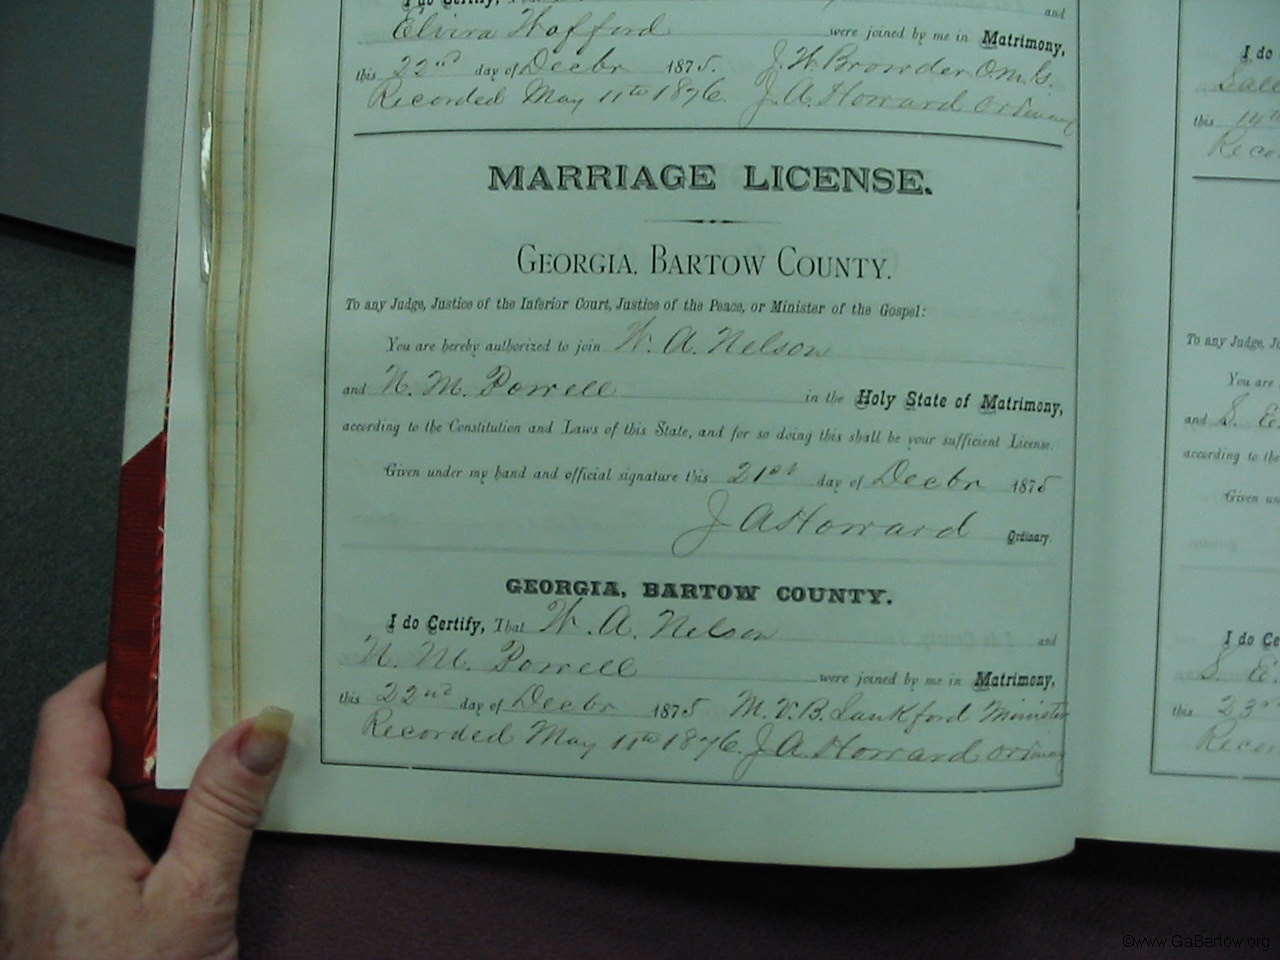 I do Certify, That
and
Elvira Wofford were joined by me in Matrimony,
this 22nd day of Decbr 1875. J. W. Browder O.M.G.
Recorded May 11th 1876. J. A. Howard Ordinary
MARRIAGE LICENSE.
GEORGIA, BARTOW COUNTY.
To any Judge, Justice of the Inferior Court, Justice of the Peace, or Minister of the Gospel:
You are hereby authorized to join W. A. Nelson
and N. M. Powell in the Holy State of Matrimony,
according to the Constitution and Laws of this State, and for so doing this shall be your sufficient License.
Given under my hand and official signature this 21st day of Decbr 1875
J A Howard Ordinary.
GEORGIA, BARTOW COUNTY.
I do Certify, That W. A. Nelson and
N. M. Powell were joined by me in Matrimony,
this 22nd day of Decbr 1875 M. V. B. Lankford Minister
Recorded May 11th 1876. J. A. Howard Ordinary
I do
this 14th
To any Judge, Ju
You are
and S. E.
according to the
Given un
I do Ce
S. E.
this 23rd
Reco
©www.GaBartow.org